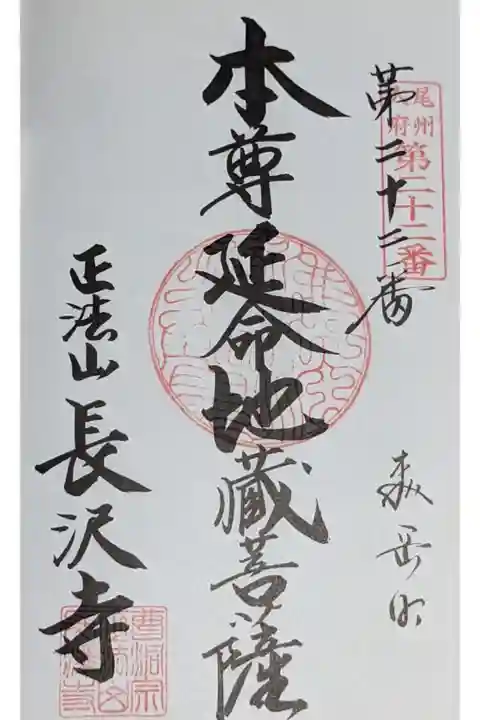 尾州
府
第二十二番
第二十二番
本尊延命地蔵菩薩
正法山長沢寺
曹洞宗